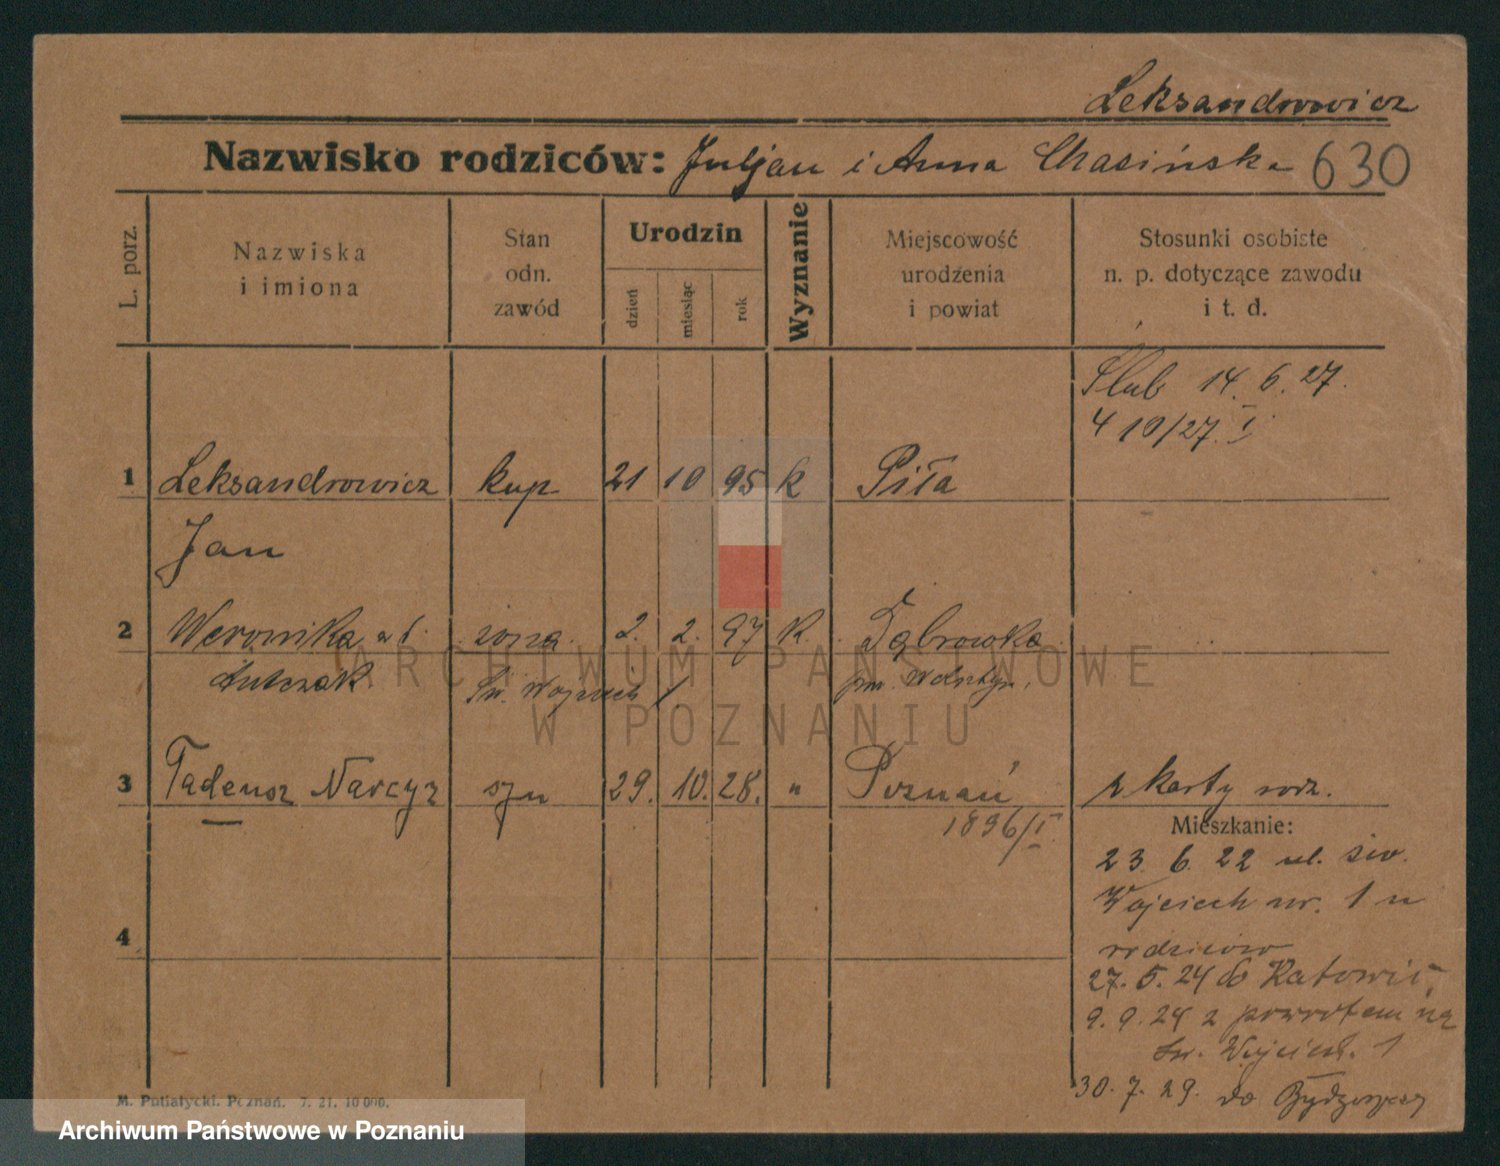 Leksandrowicz
Nazwisko rodziców: Juljan i Anna Chasińska 630
L. porz.
Nazwiska
i imiona
Stan
odn.
zawód
Urodzin
dzień
miesiąc
rok
Wyznanie
Miejscowość
urodzenia
i powiat
Stosunki osobiste
n. p. dotyczące zawodu
i t. d.
Ślub 14. 6. 27.
410/27. I
1 Leksandrowicz kup 21 10 95 k Piła
Jan
2 Weronika z d. żona 2. 2. 97 k. Dąbrowka
Antczak Św. Wojciech 1 pow. Wolsztyn.
3 Tadeusz Narcyz syn 29. 10. 28. " Poznań z karty rodz.
1896/I
Mieszkanie:
23. 6. 22 ul. św.
Wojciech nr. 1 u
rodziców
4
27. 5. 24 do Katowic,
9. 9. 24 z powrotem na
św. Wojciech. 1
30. 7. 29. do Bydgoszczy
M. Putiatycki. Poznań. 7. 21. 10 000.
ARCHIWUM PAŃSTWOWE
W POZNANIU
Archiwum Państwowe w Poznaniu